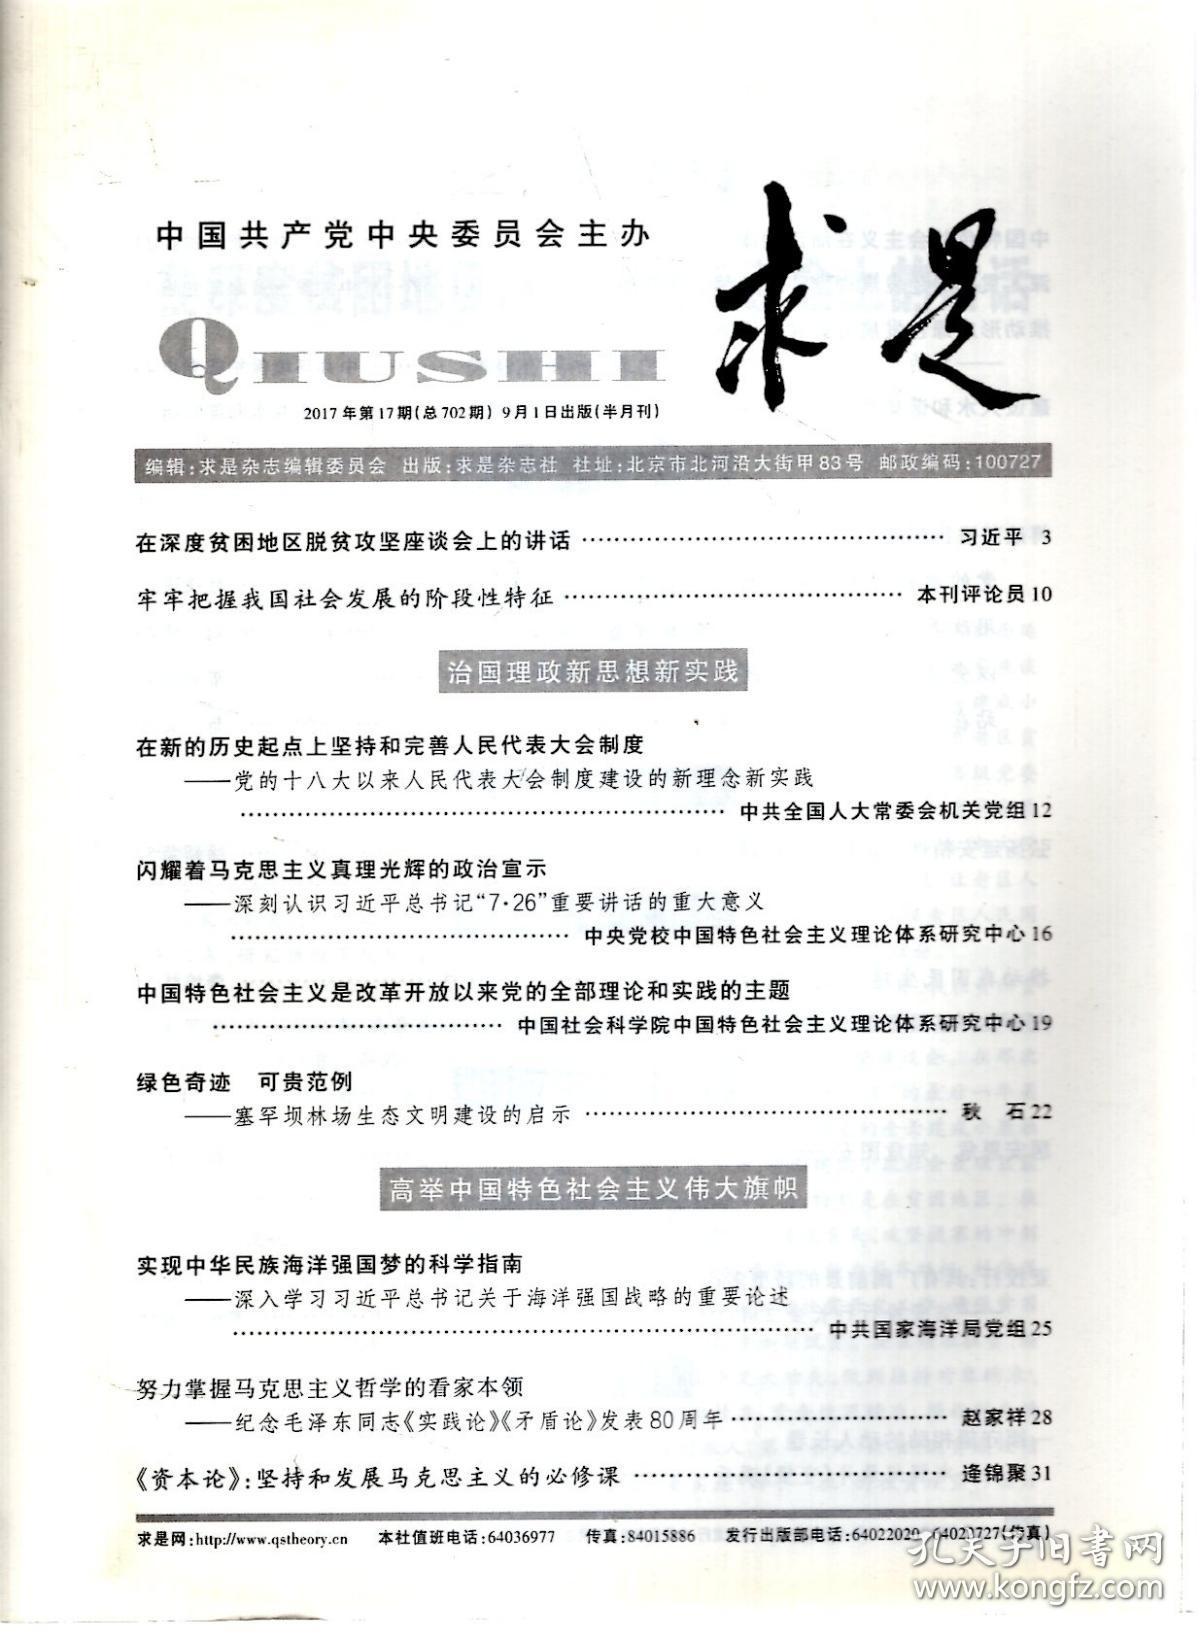 中国共产党中央委员会主办
求是
QIUSHI
2017年第17期(总702期) 9月1日出版(半月刊)
编辑:求是杂志编辑委员会 出版:求是杂志社 社址:北京市北河沿大街甲83号 邮政编码:100727
在深度贫困地区脱贫攻坚座谈会上的讲话 …… 习近平 3
牢牢把握我国社会发展的阶段性特征 …… 本刊评论员 10
治国理政新思想新实践
在新的历史起点上坚持和完善人民代表大会制度
——党的十八大以来人民代表大会制度建设的新理念新实践
…… 中共全国人大常委会机关党组 12
闪耀着马克思主义真理光辉的政治宣示
——深刻认识习近平总书记“7·26”重要讲话的重大意义
…… 中央党校中国特色社会主义理论体系研究中心 16
中国特色社会主义是改革开放以来党的全部理论和实践的主题
…… 中国社会科学院中国特色社会主义理论体系研究中心 19
绿色奇迹 可贵范例
——塞罕坝林场生态文明建设的启示 …… 秋 石 22
高举中国特色社会主义伟大旗帜
实现中华民族海洋强国梦的科学指南
——深入学习习近平总书记关于海洋强国战略的重要论述
…… 中共国家海洋局党组 25
努力掌握马克思主义哲学的看家本领
——纪念毛泽东同志《实践论》《矛盾论》发表80周年 …… 赵家祥 28
《资本论》:坚持和发展马克思主义的必修课 …… 逄锦聚 31
求是网:http://www.qstheory.cn 本社值班电话:64036977 传真:84015886 发行出版部电话:64022020 64020727(传真)
孔夫子旧书网
www.kongfz.com